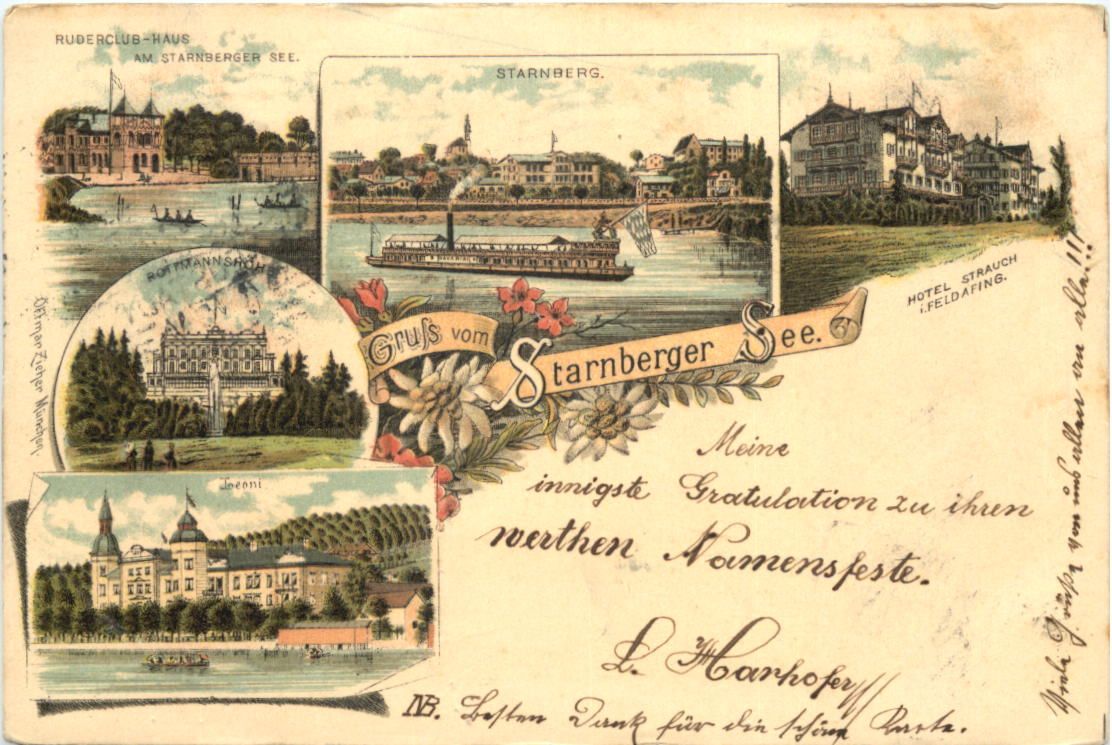 RUDERCLUB-HAUS
AM STARNBERGER SEE.
STARNBERG.
HOTEL STRAUCH
i. FELDAFING.
ROTTMANNSHÖH
Ottmar Zieher München.
Gruſs vom
Starnberger See.
Leoni
Meine
innigste Gratulation zu ihren
werthen Namensfeste.
L. Harhofer
NB. Besten Dank für die schöne Karte.
Viele Grüße von uns allen an alle!!!